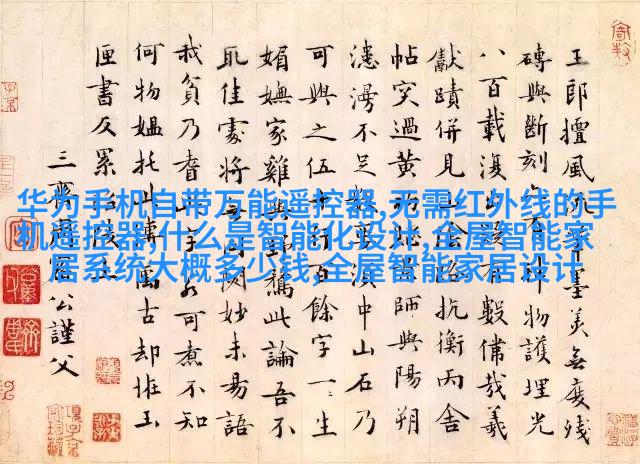 华为手机自带万能遥控器,无需红外线的手
机遥控器,什么是智能化设计,全屋智能家
居系统大概多少钱,全屋智能家居设计
王郎擅風墨美無度殘
磚與斷刻神物護埋光
八百載復有數儔哉羲
獻蹟併見抗衡兩舍
帖突過黃師與陽朔
漶漫不足漢中山石乃
可與之伍百餘字一一生
媚嫵家雞與野鶩此論吾不
取佳處將閱妙未易語
我貧乃奢可煮不知
何物媼托此萬古却推玉
匣書反累
三喪公謹父